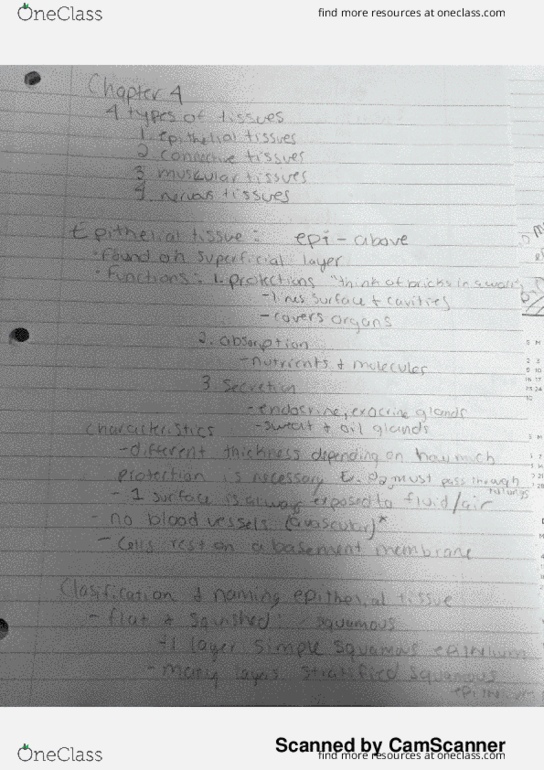 OneClass
find more resources at oneclass.com
Chapter 4
4 types of tissues
1. epithelial tissues
2 connective tissues
3 muscular tissues
4. nervas tissues
Epithelial tissue: epi - above
· found on superficial layer
· functions: 1. protections "think of bricks in a wall"
- lines surface & cavities
- covers organs
2. absorption
- nutrients & molecules
3 Secretion
- endocrine, exocrine glands
- sweat & oil glands
Characteristics
- different thickness depending on how much
protection is necessary must pass through
- 1 surface is always exposed to fluid/air
- no blood vessels (avascular)*
- cells rest on a basement membrane
Clasification & naming epithelial tissue
- flat & squished: squamous
1 layer simple squamous epithelium
- many layers stratified squamous
epithelium
Scanned by CamScanner
OneClass
find more resources at oneclass.com